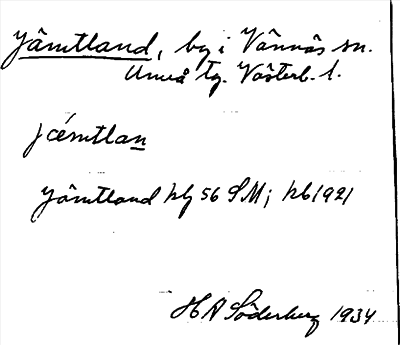 Jämtland, by i Vännäs sn.
Umeå tg. Västerb. l.
jœ́mtlan
Jämtland hfl 56 SM; hb 1921
H A Söderberg 1934